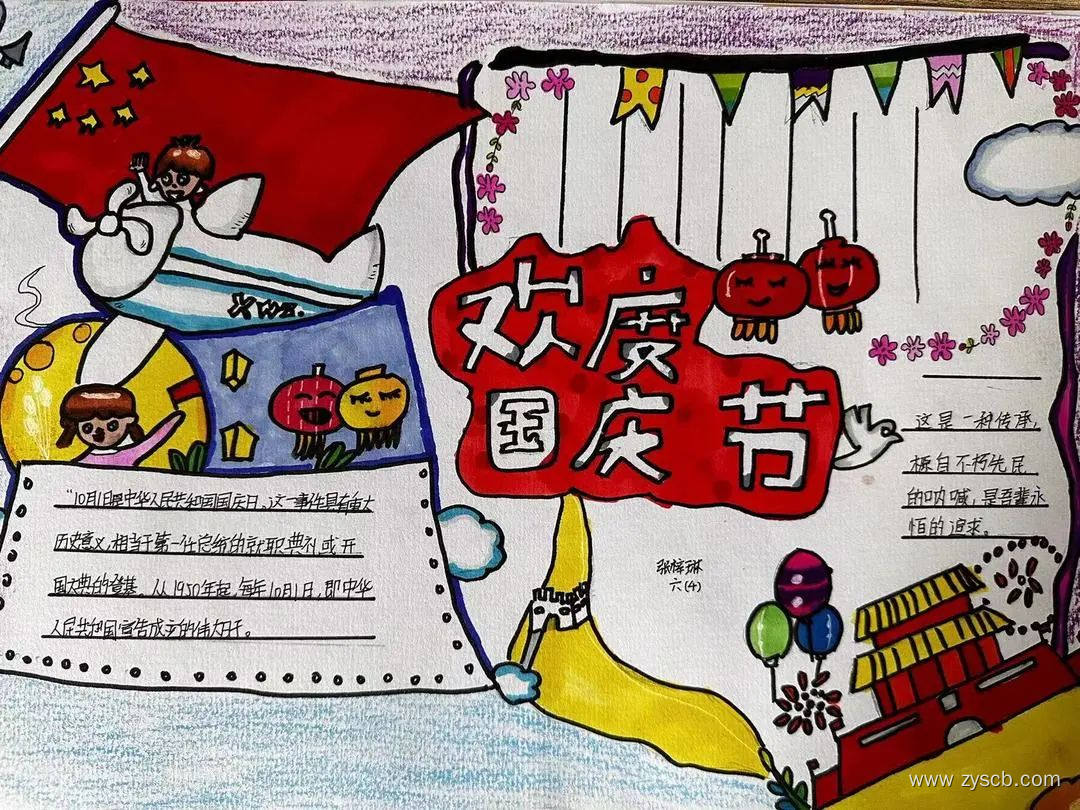 欢度
国庆节
"10月1日是中华人民共和国国庆日、这一事件具有重大
历史意义,相当于第一任总统的就职典礼或开
国大典的登基。从1950年起,每年10月1日,即中华
人民共和国宣告成立的伟大日子。
这是一种传承,
源自不朽先民
的呐喊,是吾辈永
恒的追求。
张梓琳
六(4)
www.zyscb.com